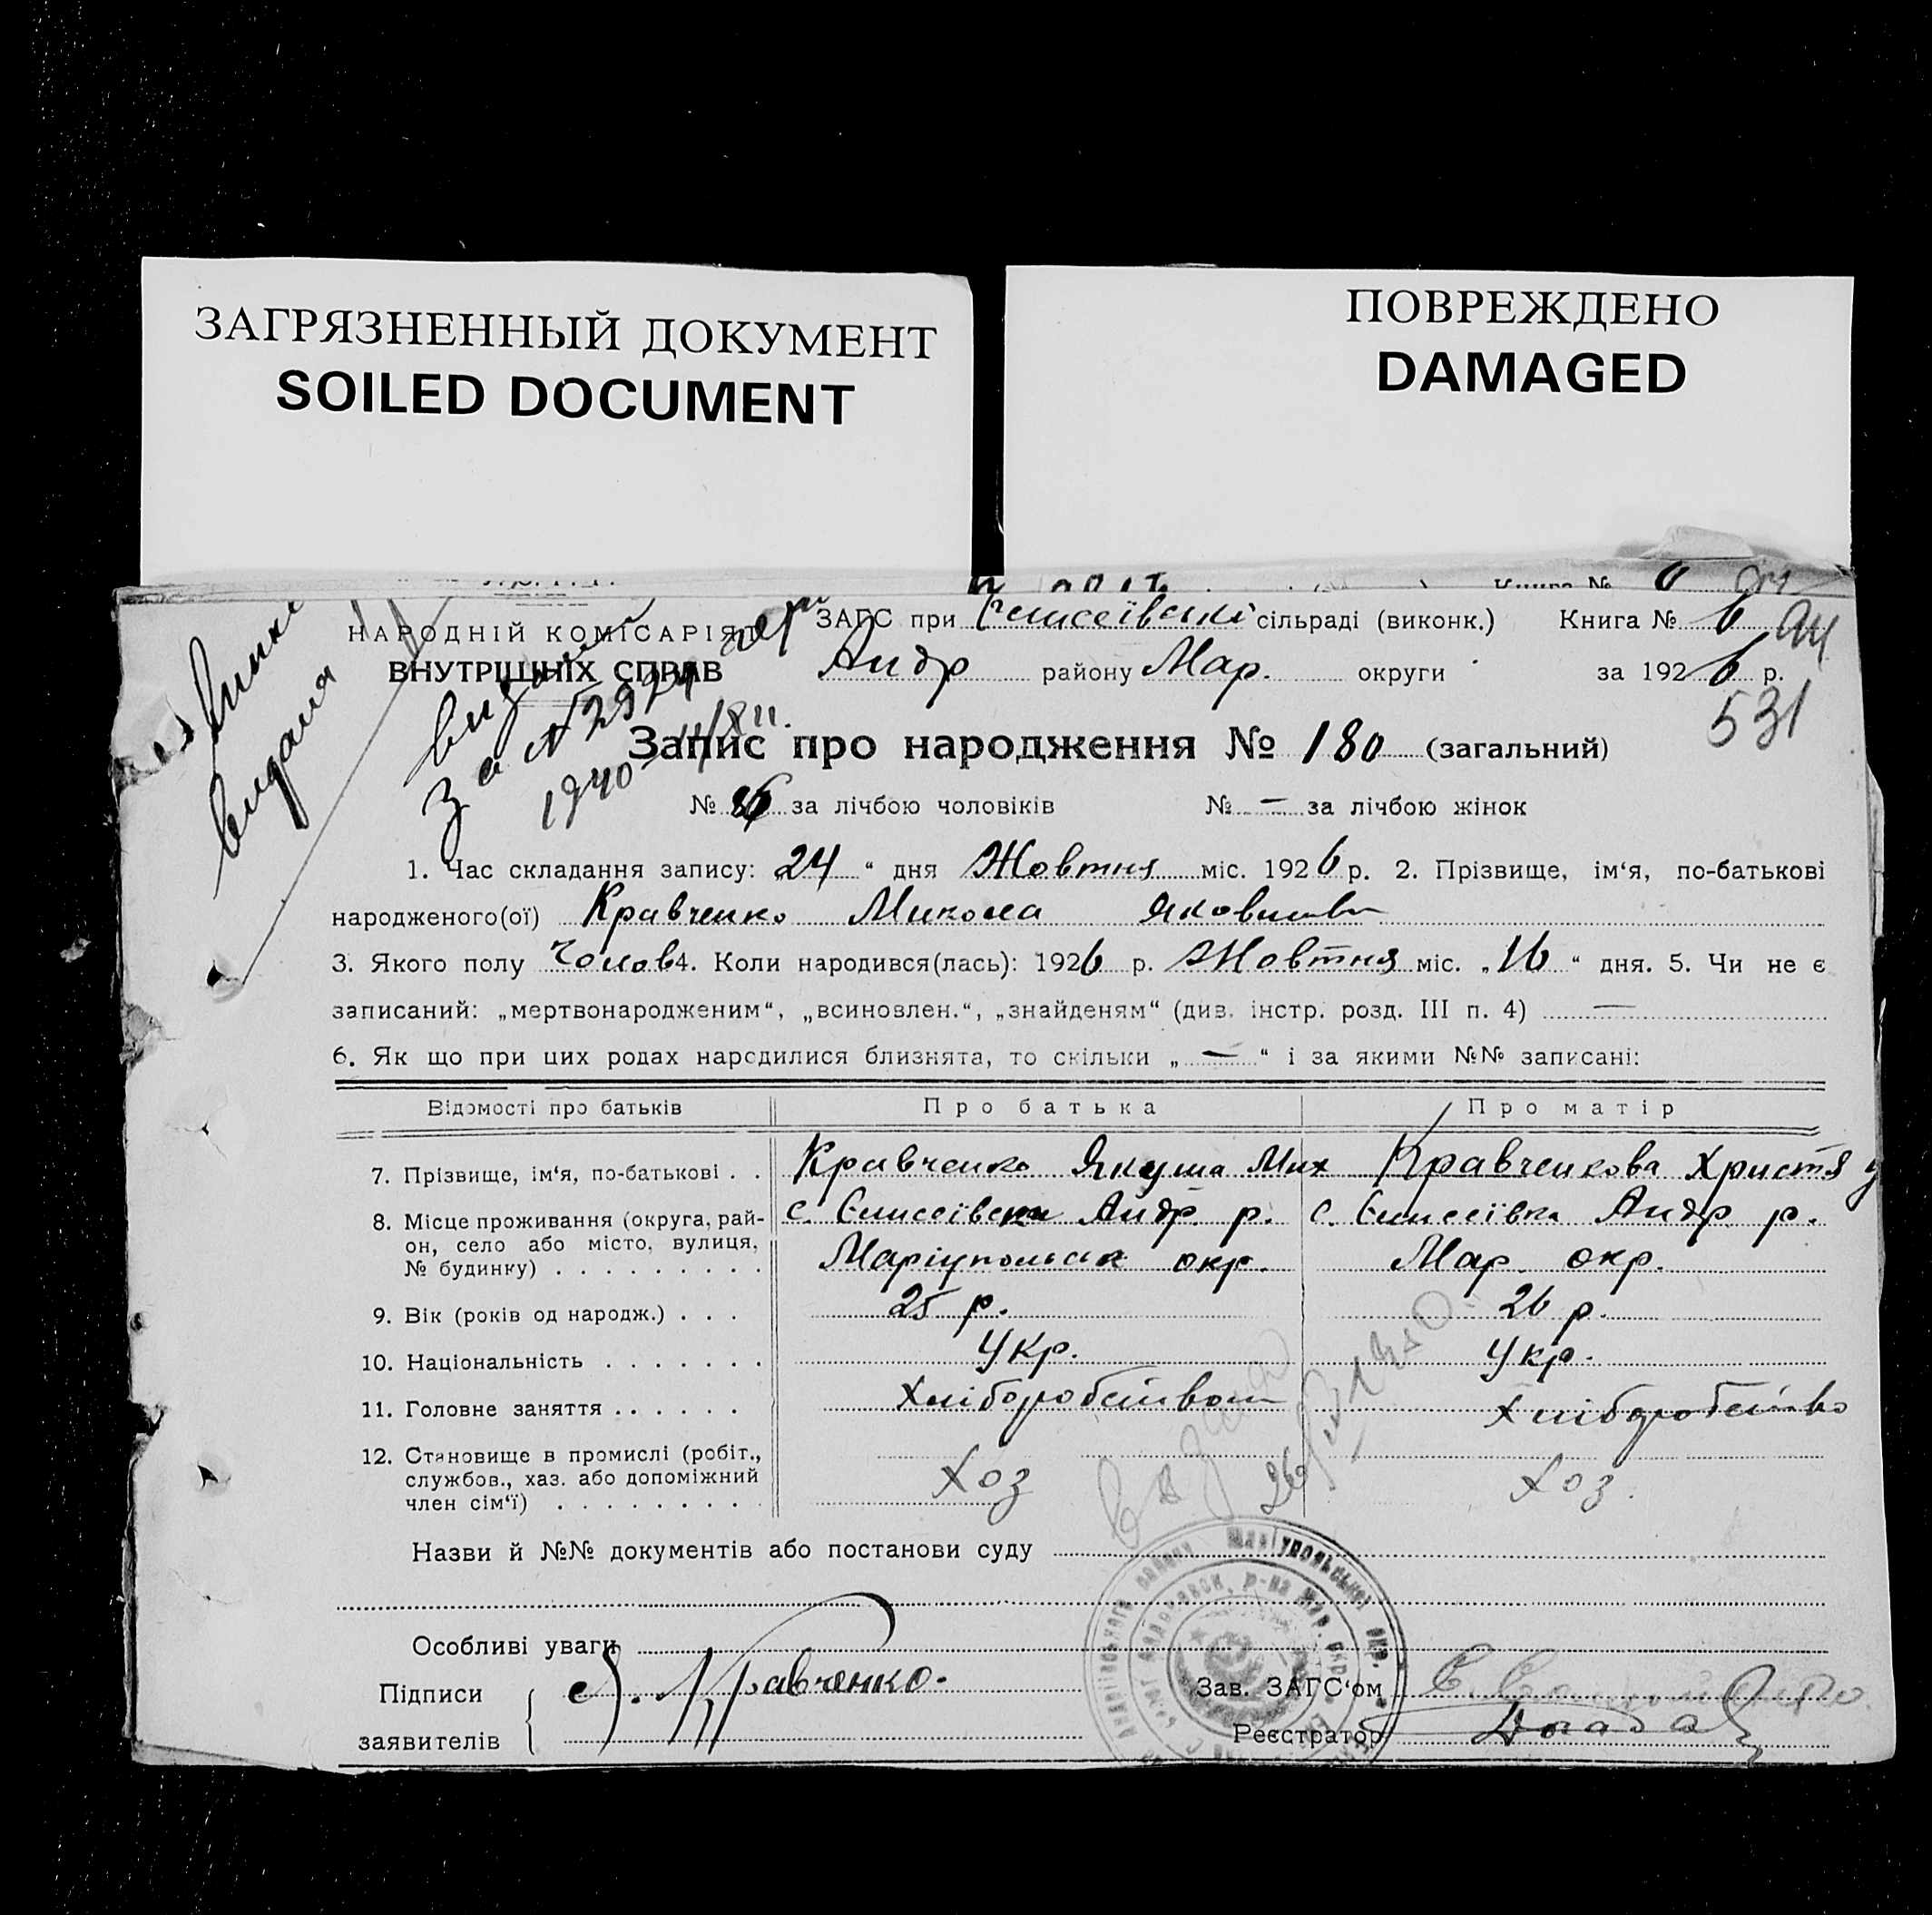 ЗАГРЯЗНЕННЫЙ ДОКУМЕНТ
SOILED DOCUMENT
ПОВРЕЖДЕНО
DAMAGED
НАРОДНІЙ КОМІСАРІЯТ
ВНУТРІШНІХ СПРАВ
ЗАГС при Єлисеївські сільраді (виконк.) Книга № 6
Андр району Мар. округи за 1926 р.
531
видання
За №
1940
Запис про народження № 180 (загальний)
№ за лічбою чоловіків № — за лічбою жінок
1. Час складання запису: „24“ дня Жовтня міс. 1926 р. 2. Прізвище, ім‘я, по-батькові
народженого(ої) Кравченко Микола Якович
3. Якого полу Чолов 4. Коли народився(лась): 1926 р. Жовтня міс. „16“ дня. 5. Чи не є
записаний: „мертвонародженим“, „всиновлен.“, „знайденям“ (див. інстр. розд. III п. 4) —
6. Як що при цих родах народилися близнята, то скільки „—“ і за якими №№ записані:
Відомості про батьків Про батька Про матір
7. Прізвище, ім‘я, по-батькові . . Кравченко Якуша Мих Кравченкова Христя
8. Місце проживання (округа, рай- с. Єлисеївка Андр. р. с. Єлисеївка Андр р.
он, село або місто, вулиця,
№ будинку) . . . . . . . . . Маріупольськ окр. Мар. окр.
9. Вік (років од народж.) . . . 25 р. 26 р.
10. Національність . . . . . . . Укр. Укр.
11. Головне заняття . . . . . . Хліборобством Хліборобство
12. Становище в промислі (робіт.,
службов., хаз. або допоміжний Хоз Хоз.
член сім‘ї) . . . . . . . . .
Назви й №№ документів або постанови суду
Особливі уваги
Підписи Я. Кравченко. Зав. ЗАГС‘ом
заявителів Реєстратор